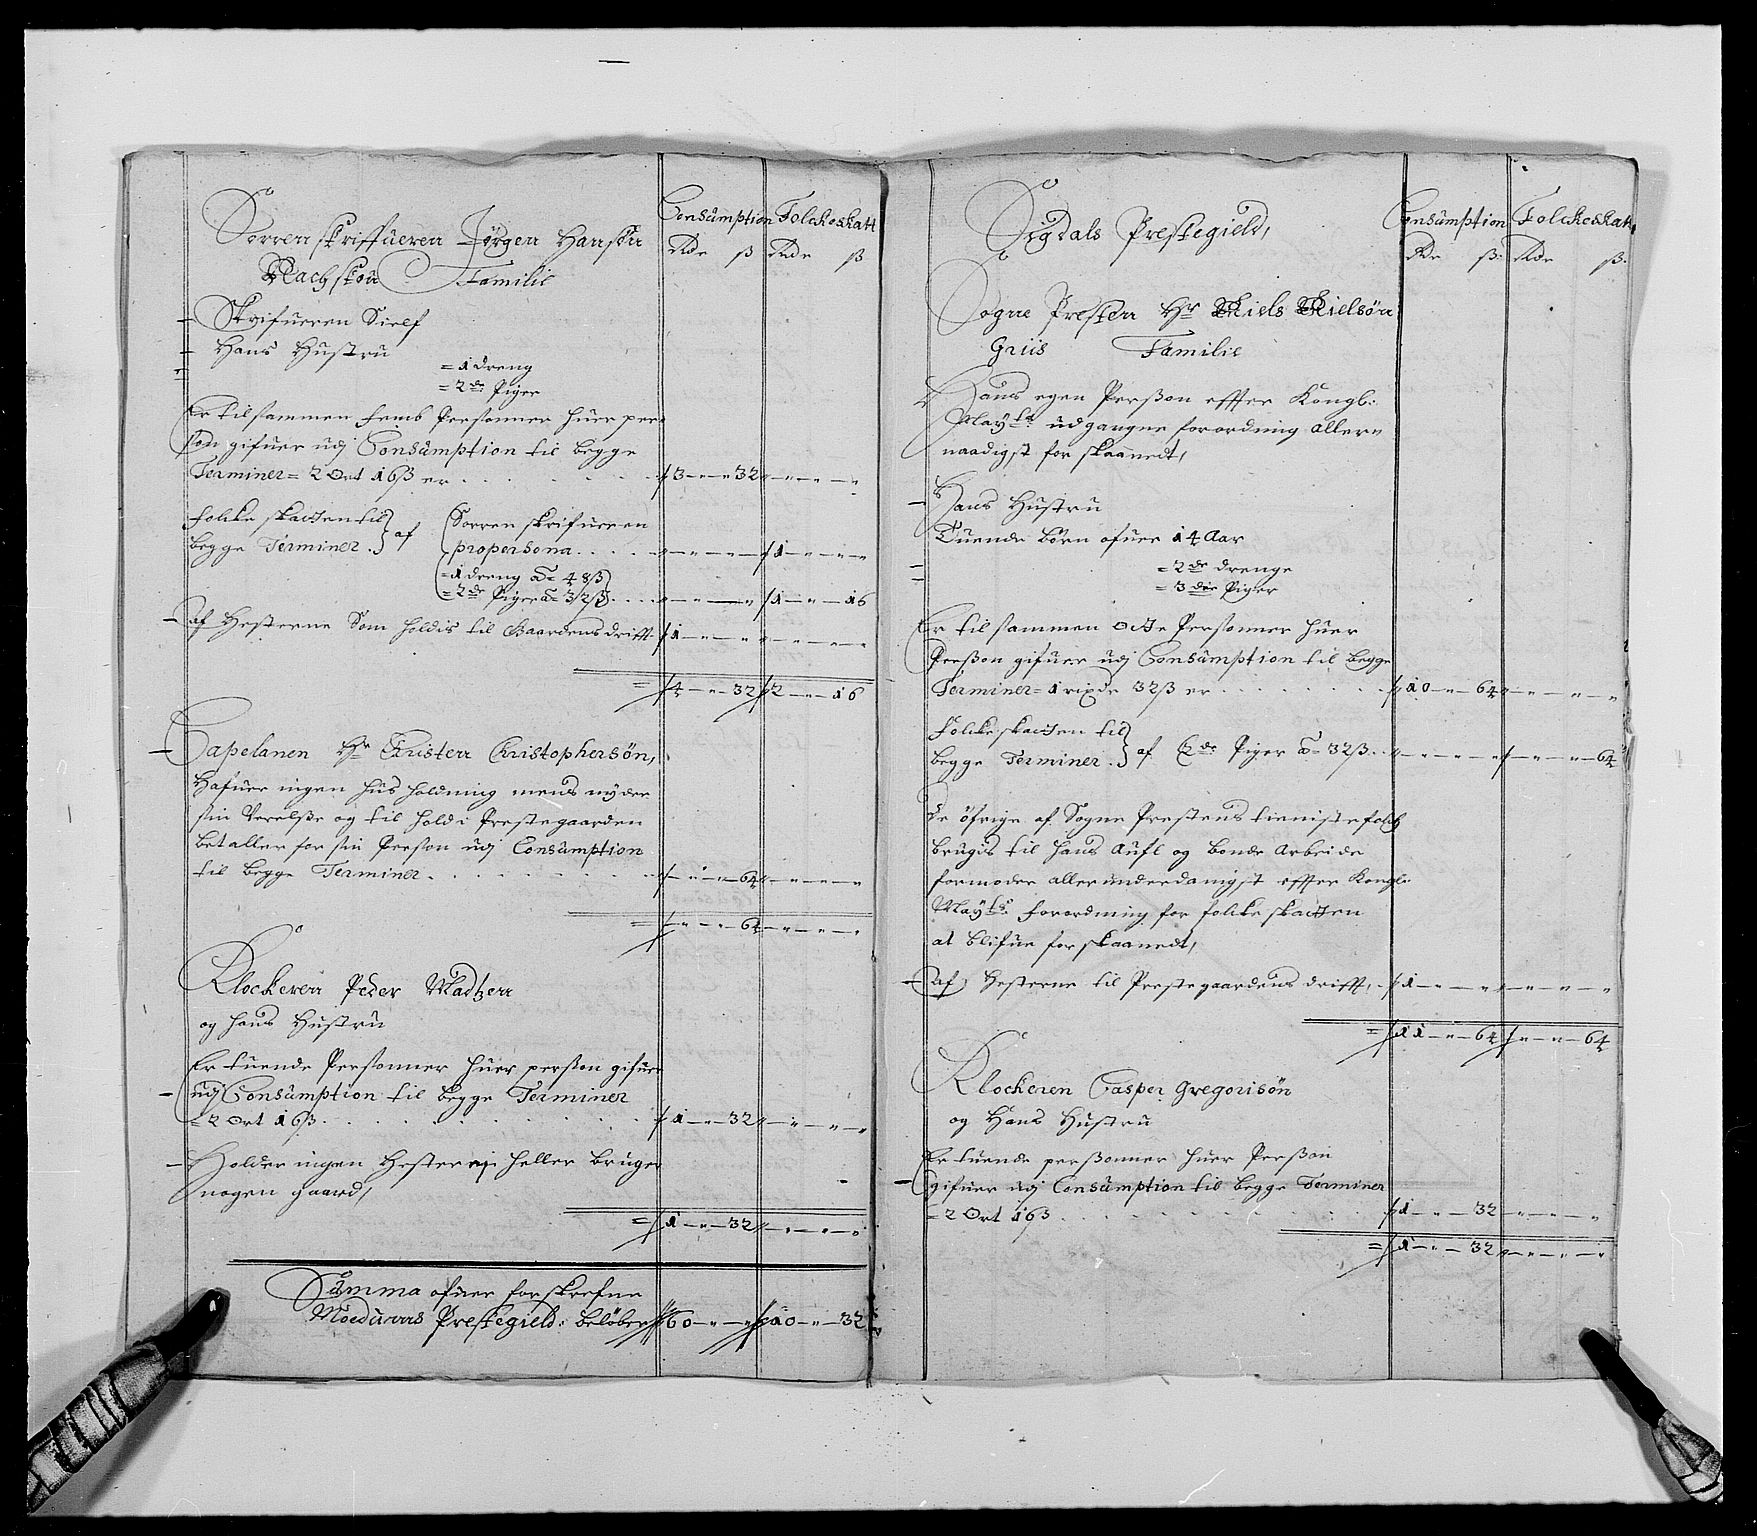 Consumption Folckeskatt
Rde ß Rde ß
Sorrenskriffueren Jørgen Hanssen
Nachskou Familie
Skrifueren Sielf
Hans Hustru
= 1 dreng
= 2de Piger
Er tilsammen femb Personner huer per-
son gifuer udj Consumption til begge
Terminer = 2 Ort 16ß er . . . . 3 - " - 32
Folckeskatten til
begge Terminer. af Sorrenskrifueren
propersona . . . . 1 - " - "
= 1 dreng a= 48ß
= 2de Piger a= 32ß . . . 1 - " - 16
af Hesterne Som holdis til Gaardens drifft 1 - " - "
= 4 - " - 32 2 - " - 16
Capelanen Hr Christen Christophersøn,
Hafuer ingen huusholdning mens nyder
sin Verelsse og til hold i Prestegaarden
betaller for sin Person udj Consumption
til begge Terminer . . . . " - " - 64
= " - " - 64
Klockeren Peder Madtzen
og hans Hustru
Er tuende Personner huer person gifuer
udj Consumption til begge Terminer
= 2 Ort 16ß . . . . 1 - " - 32
Holder ingen Hester ej heller bruger
nogen gaard,
= 1 - " - 32
Summa ofuer forskrefne
Moedums Prestegield: beløber 60 - " - " 20 - " - 32
Consumption Folckeskatt
Rde ß Rde ß
Sigdals Prestegield,
Sogne Presten Hr Niels Nielsøn
Griis Familie
Hans egen Person effter Kongl:
Maytz udgangne forordning allern
naadigst forskaanedt,
Hans Hustru
Tuende børn ofuer 14 Aar
= 2de drenge
= 3die Piger
Er tilsammen Otte Personner huer
Person gifuer udj Consumption til begge
Terminer = 1 rixde 32ß er . . . . 10 - " - 64
Folckeskatten til
begge Terminer. af 2de Piger a= 32ß . . " - " - 64
De øfrige af Sogne Prestens tienistefolck
brugis til hans Aufl og bonde Arbeide
formoder allerunderdanigst effter Kongl:
Maytz forordning for folckeskatten
at blifue forskaanedt,
Af Hesterne til Prestegaardens drifft, 1 - " - "
= 11 - " - 64 " - " - 64
Klockeren Casper Gregorisøn
og Hans Hustru
Er tuende personner huer Person
gifuer udj Consumption til begge Terminer
= 2 Ort 16ß . . . . 1 - " - 32
= 1 - " - 32